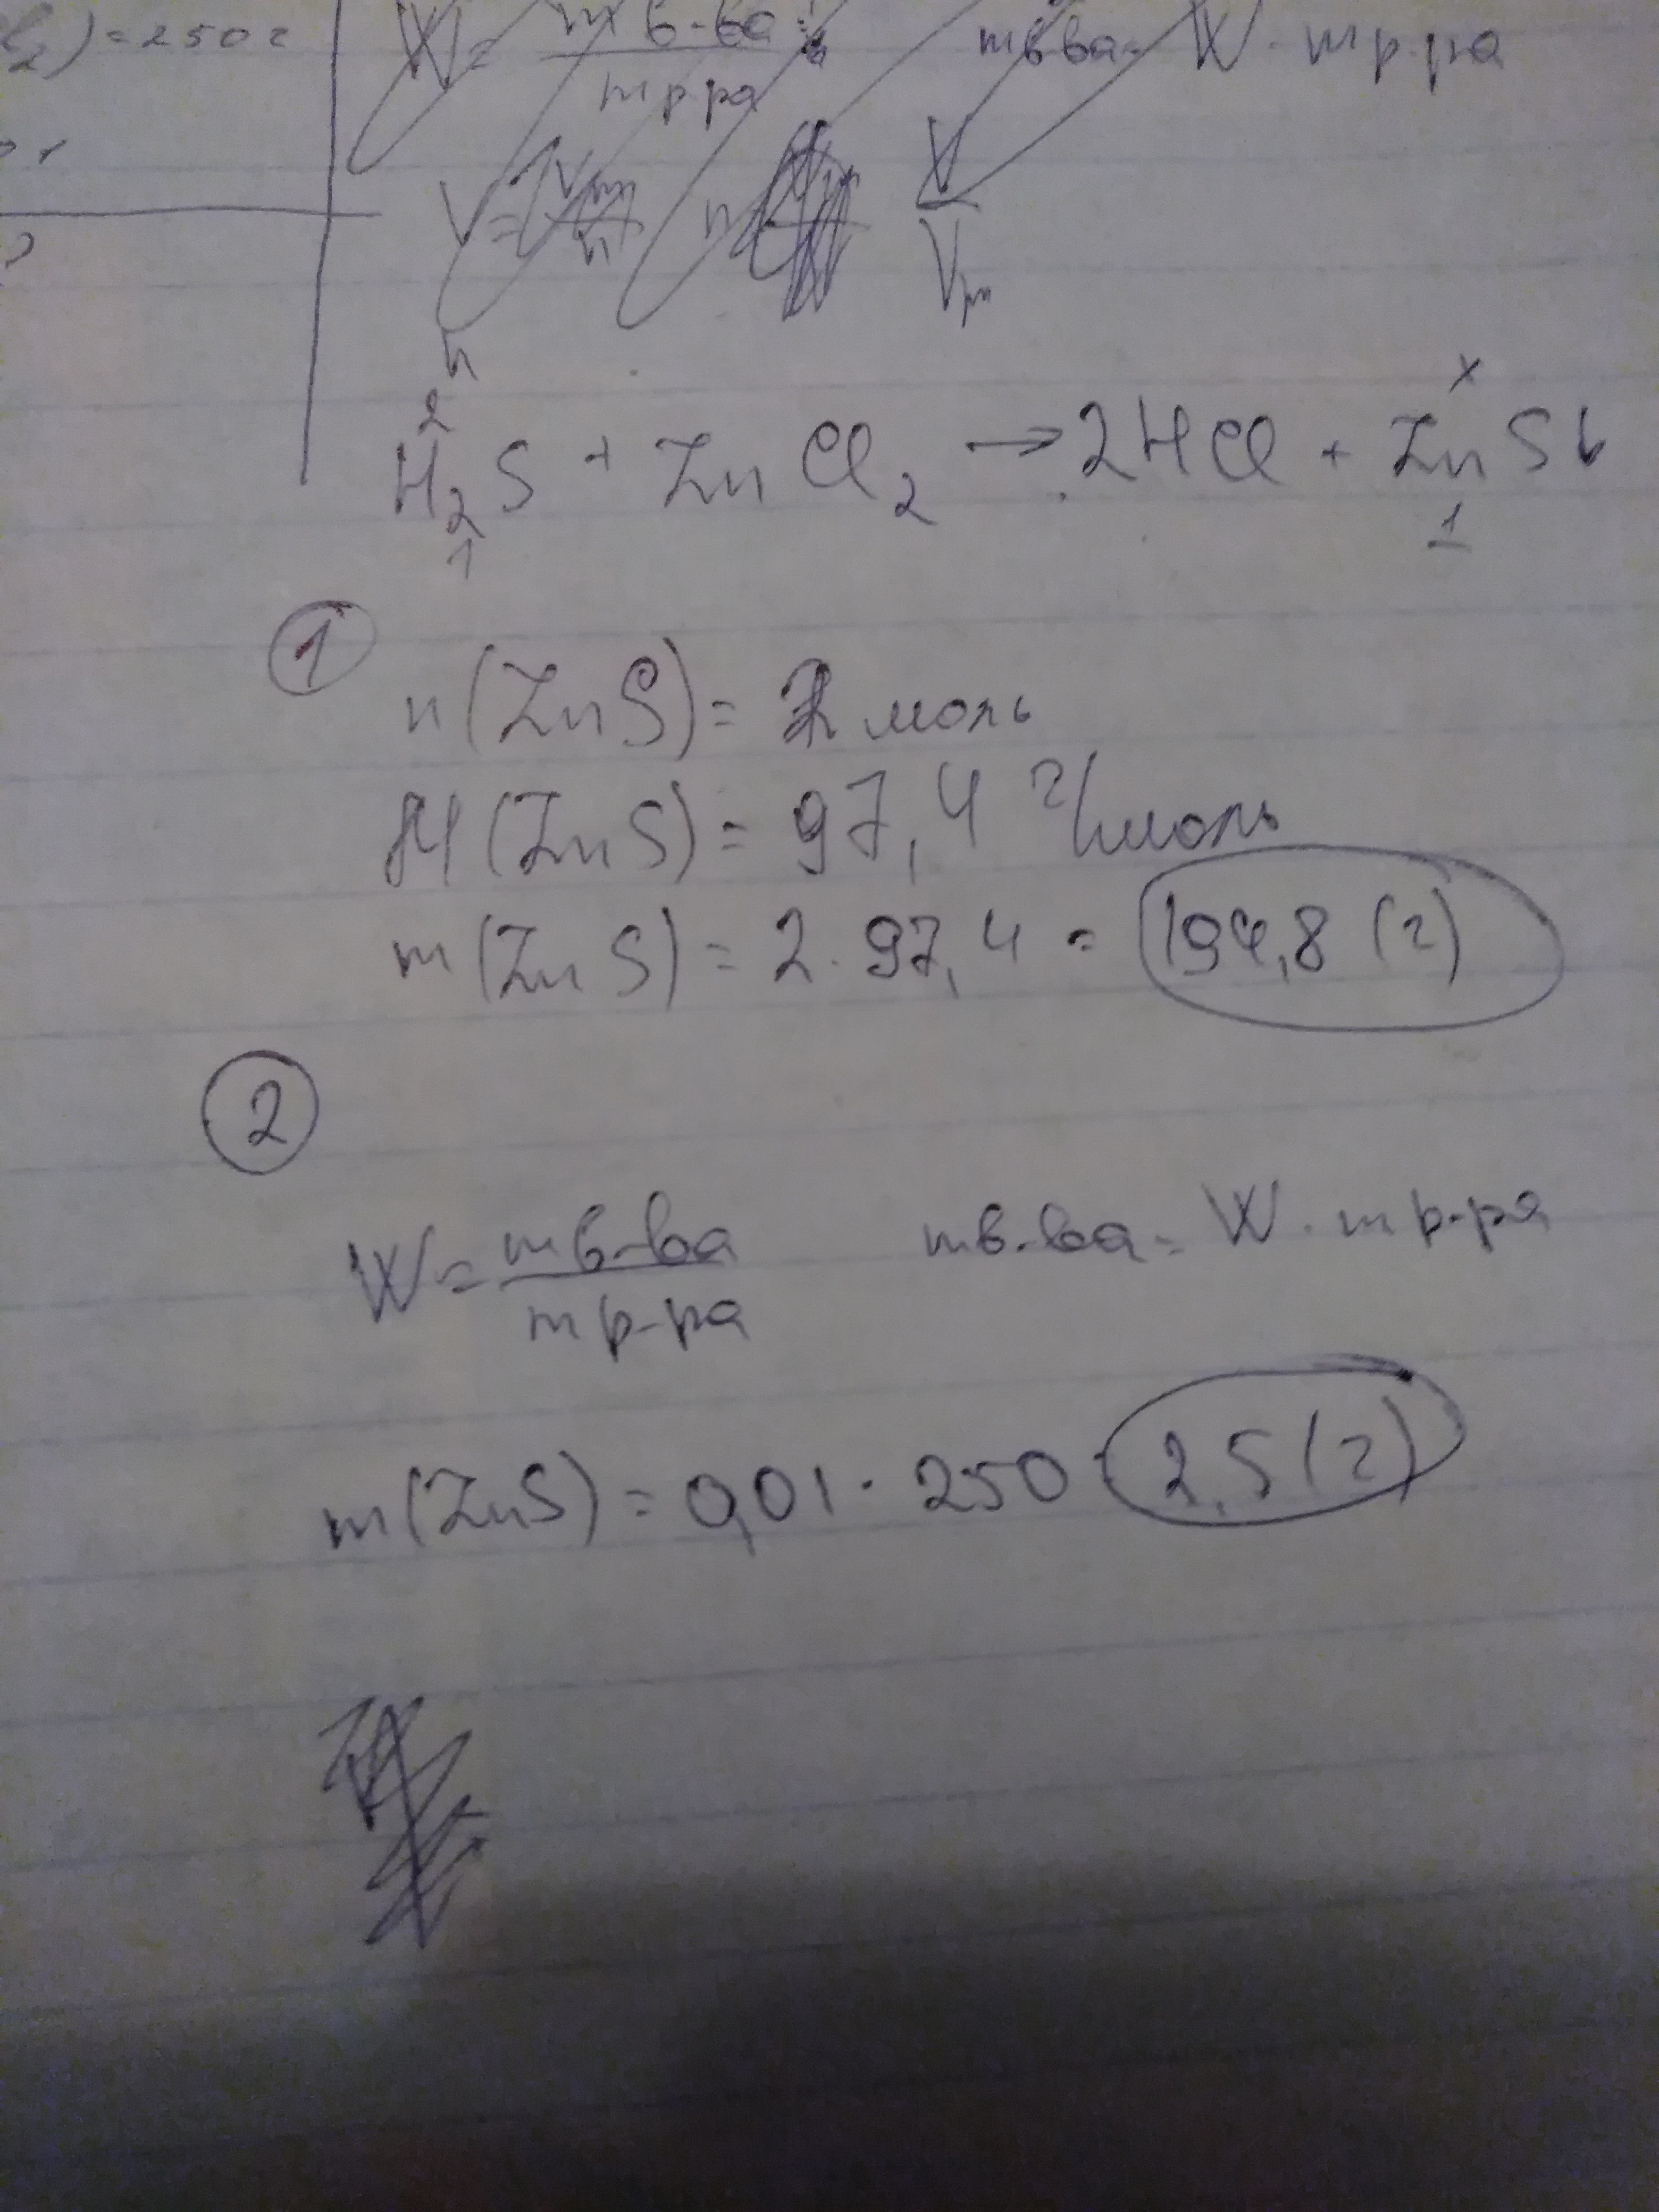 )=250г
W= m в-ва
m р.ра
m в ва= W · m р.ра
V=
n
V
Vm
2 x
H2S + ZnCl2 → 2HCl + ZnS
1 1
1
n(ZnS)= 2 моль
M(ZnS)= 97,4 г/моль
m(ZnS)= 2·97,4 = 194,8 (г)
2
W= m в-ва
m р-ра
m в-ва= W · m р-ра
m(ZnS)= 0,01·250 2,5 (г)